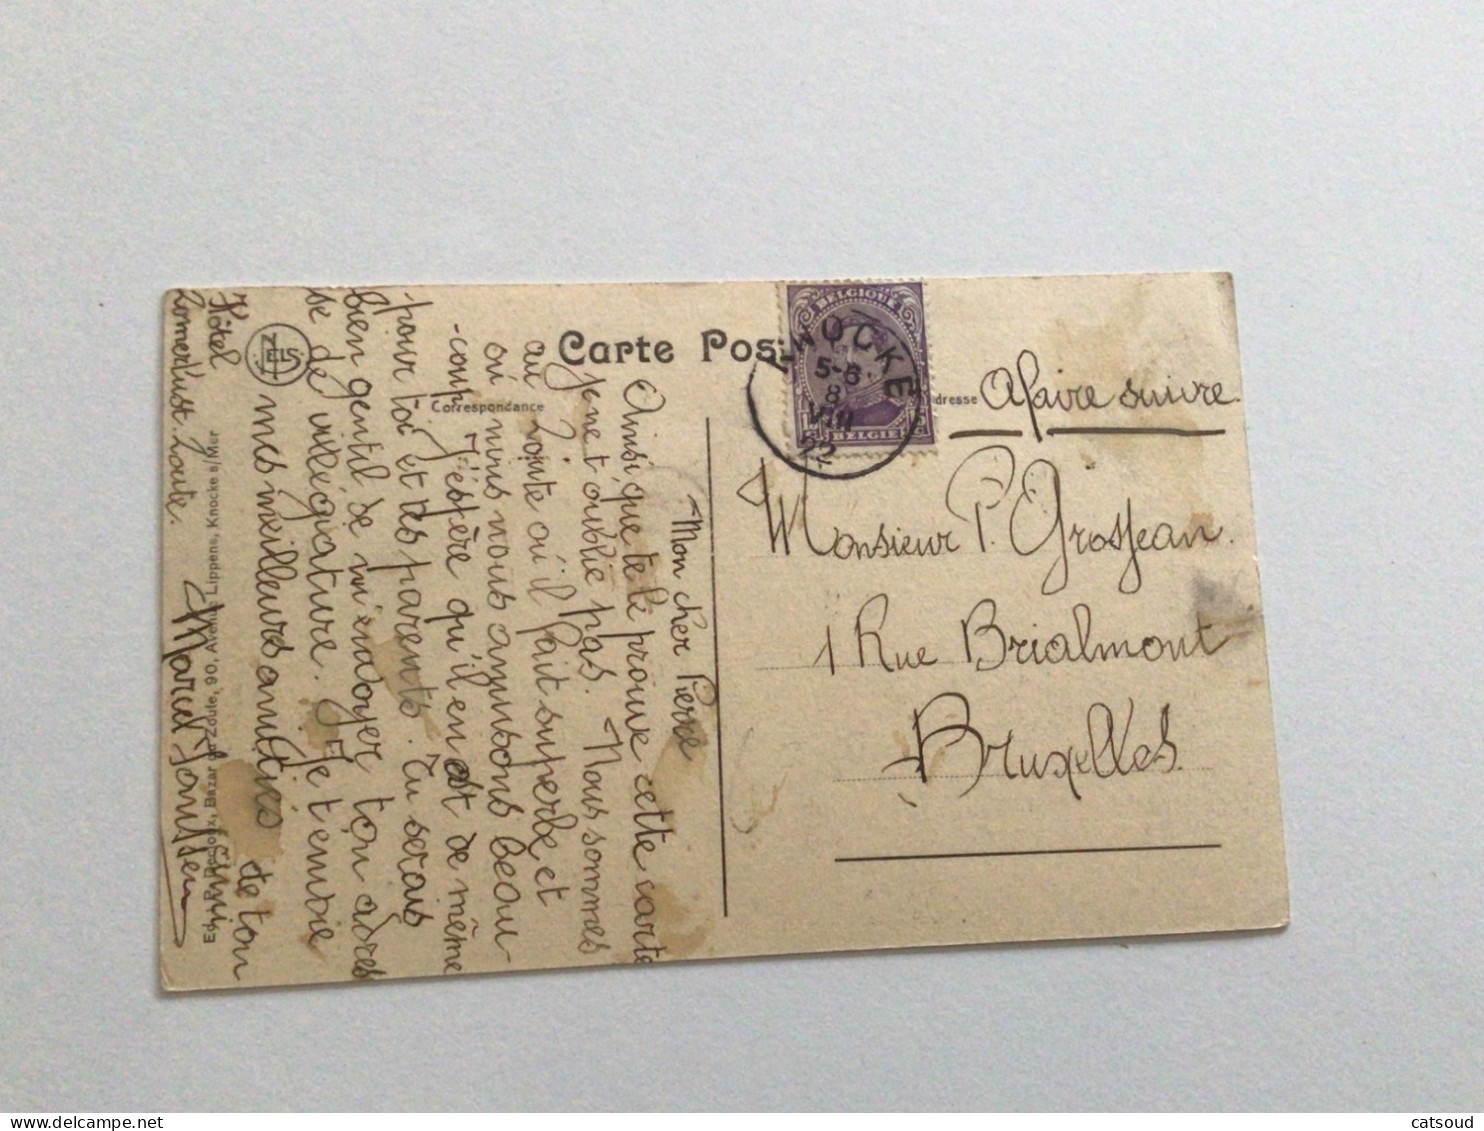 Carte Pos
Correspondance
dresse
A faire suivre.
Monsieur P. Grosjean.
1 Rue Brialmont
Bruxelles.
BELGIQUE
BELGIE
KNOCKE
5-6
8
VIII
22
Mon cher Pierre
Ainsi que te le prouve cette carte
je ne t'oublie pas. Nous sommes
au Zoute où il fait superbe et
où nous nous amusons beau
-coup. J'éspére qu'il en est de même
pour toi et tes parents. Tu serais
bien gentil de m'envoyer ton adres
se de villégiature. Je t'envoie
mes meilleurs amitiés de ton
ami
Marcel Janssen
Hôtel
Zomerlust Zoute.
NELS
Bazar du Zoute, 90, Avenue Lippens, Knocke s/Mer
catsoud